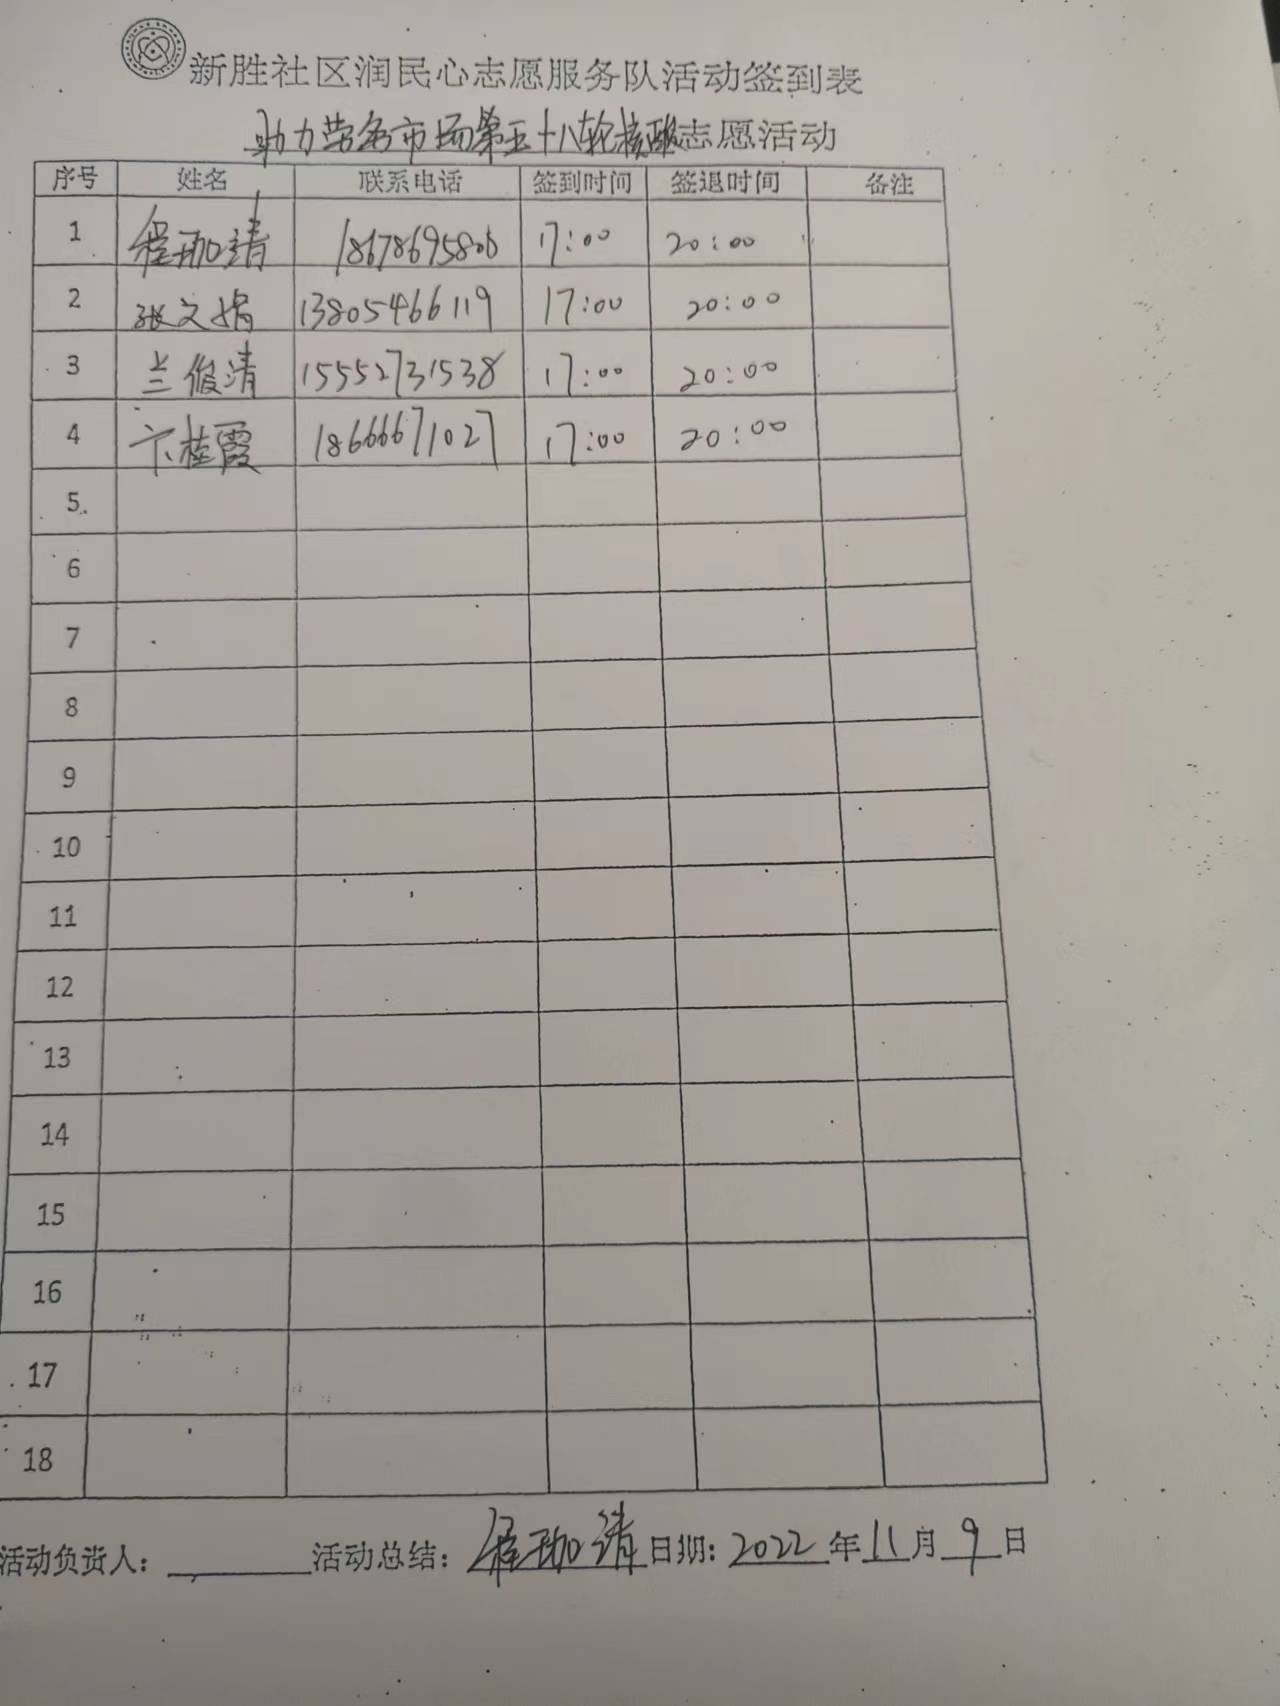 新胜社区润民心志愿服务队活动签到表
助力劳务市场第五十八轮核酸志愿活动
序号 姓名 联系电话 签到时间 签退时间 备注
1 程珈靖 18678695806 17:00 20:00
2 张文娟 13805466119 17:00 20:00
3 兰俊清 15552731538 17:00 20:00
4 卞桂霞 18666671027 17:00 20:00
5
6
7
8
9
10
11
12
13
14
15
16
17
18
活动负责人: 活动总结: 程珈靖 日期: 2022 年 11 月 9 日